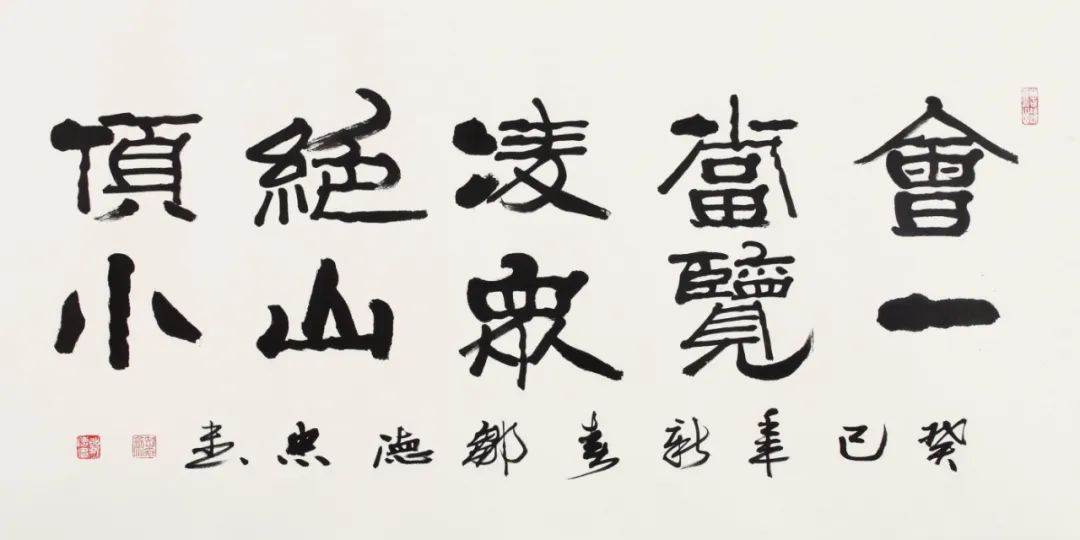 會當凌絕頂
一覽眾山小
癸巳年新春鄒德忠書